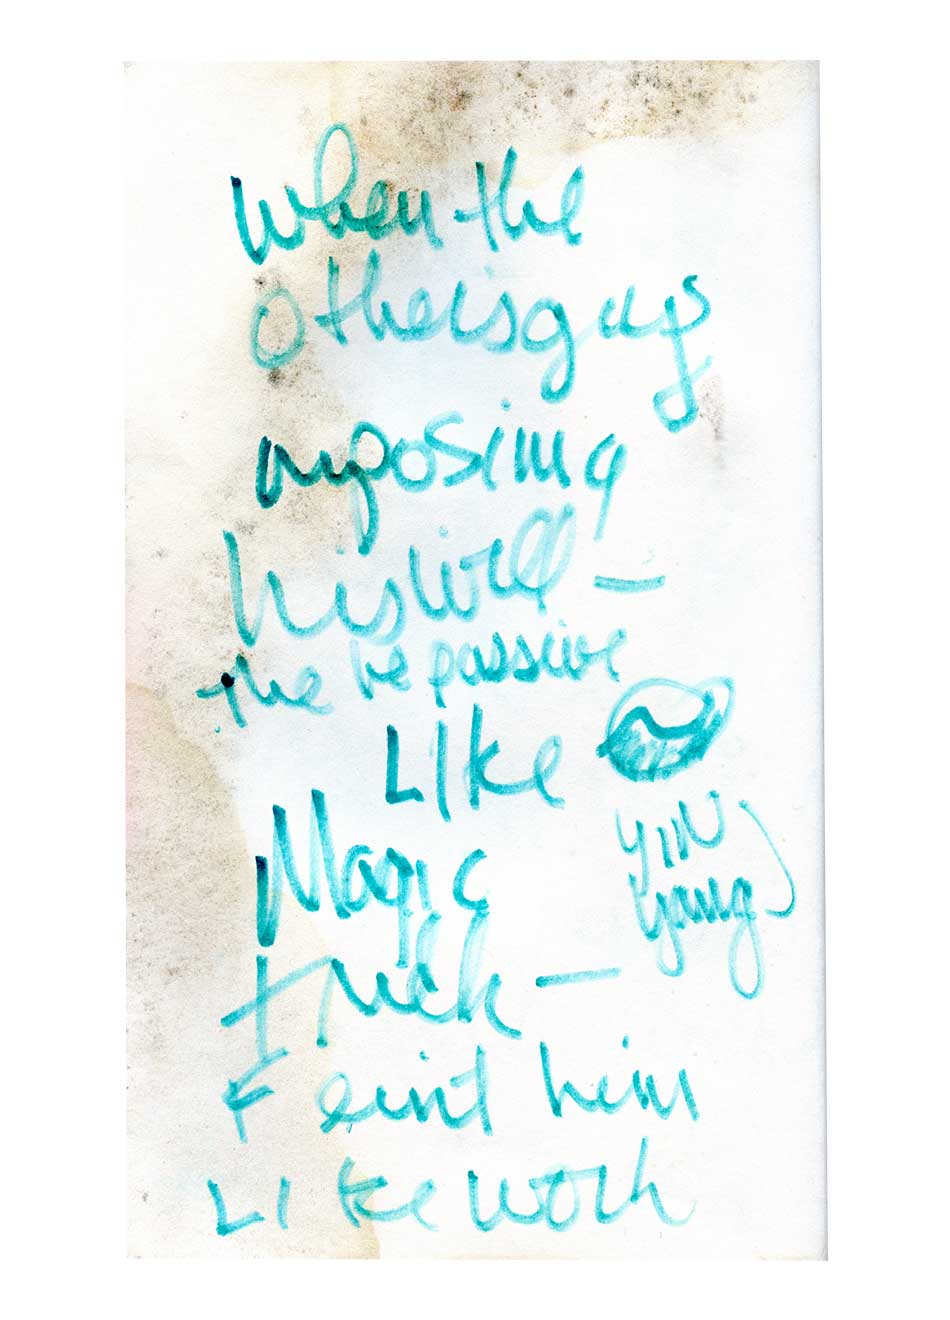 When the
Other is guys
imposing
his will —
the be passive
Like
Magic
trick —
Feint him
Like work
Yin
Yang